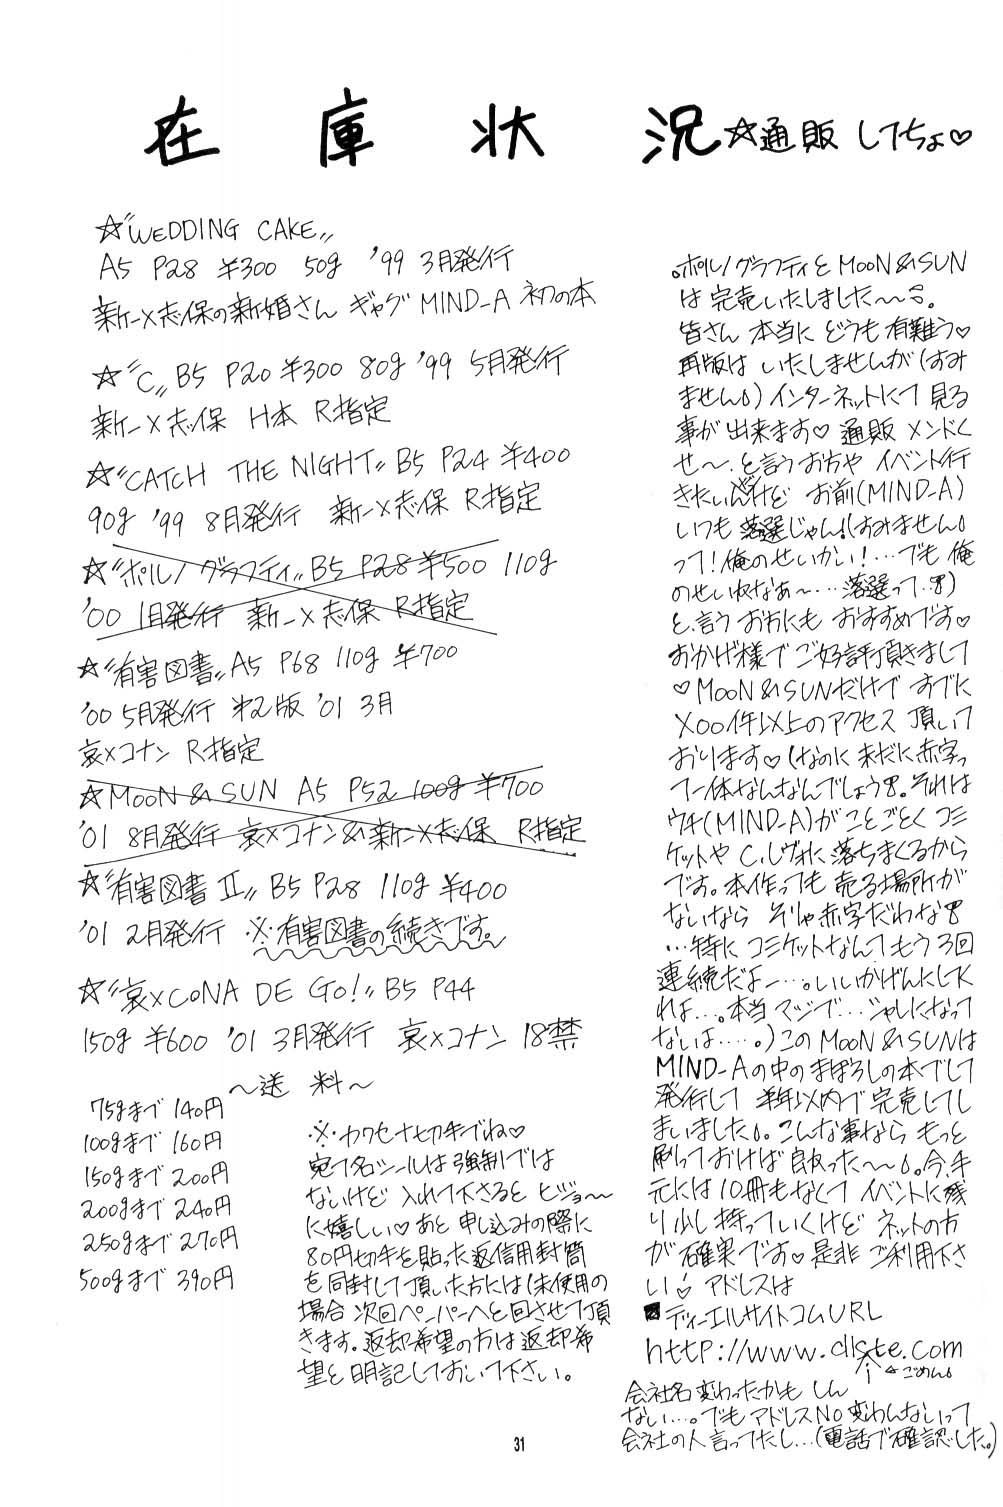 在庫状況 ☆通販してちょ♡
☆〝WEDDING CAKE〟
A5 P28 ¥300 50g '99 3月発行
新一×志保の新婚さん ギャグ MIND_A 初の本
☆〝C〟B5 P20 ¥300 80g '99 5月発行
新一×志保 H本 R指定
☆〝CATCH THE NIGHT〟B5 P24 ¥400
90g '99 8月発行 新一×志保 R指定
☆〝ポルノグラフティ〟B5 P28 ¥500 110g
'00 1月発行 新一×志保 R指定
☆〝有害図書〟A5 P68 110g ¥700
'00 5月発行 第2版 '01 3月
哀×コナン R指定
☆MOON & SUN A5 P52 100g ¥700
'01 8月発行 哀×コナン&新一×志保 R指定
☆〝有害図書 II〟B5 P28 110g ¥400
'01 2月発行 ※有害図書の続きです。
☆〝哀×CONA DE GO!〟B5 P44
150g ¥600 '01 3月発行 哀×コナン 18禁
〜送料〜
75gまで 140円
100gまで 160円
150gまで 200円
200gまで 240円
250gまで 270円
500gまで 390円
※カワセ+切手でね♡
宛て名シールは強制では
ないけど 入れて下さると ヒジョ〜
に嬉しい♡ あと 申し込みの際に
80円切手を貼った返信用封筒
を同封して頂いた方には(未使用の
場合 次回ペーパーへと回させて頂
きます。返却希望の方は返却希
望と明記しておいて下さい。
。ポルノグラフティとMOON&SUN
は完売いたしました〜。
皆さん 本当に どうも有難う♡
再版は いたしませんが(すみ
ません)インターネットにて見る
事が出来ます♡ 通販 メンドく
せ〜。と言うお方や イベント行
きたいんだけど お前(MIND_A)
いつも 落選じゃん!(すみません
って!俺のせいかい!…でも 俺
のせいねなぁ〜…落選って…)
と、言う お方にも おすすめです♡
おかげ様で ご好評頂きまして
♡MOON&SUNだけで すでに
×00件以上のアクセス 頂いて
おります♡(なのに 未だに赤字っ
て一体なんなんでしょう。それは
ウチ(MIND_A)が ことごとく コミ
ケットや C.レヴォに 落ちまくるから
です。本作っても 売る場所が
ないなら そりゃ赤字だわな
…特に コミケットなんて もう3回
連続だよー…。いいかげんにしてく
れよ…。本当 マジで…シャレになって
ないは…。)このMOON&SUNは
MIND_Aの中の まぼろしの本でして
発行して 半年以内で完売してし
まいました。こんな事なら もっと
刷っておけば 良かった〜。今、手
元には 10冊もなくて イベントに残
り少し 持っていくけど ネットの方
が 確実です♡ 是非 ご利用下さ
い♡ アドレスは
■ディーエルサイトコムURL
http://www.dlste.com
i ←ごめん
会社名変わったかも しん
ない…。でもアドレスNO変わんないって
会社の人言ってたし…(電話で確認した。)
31